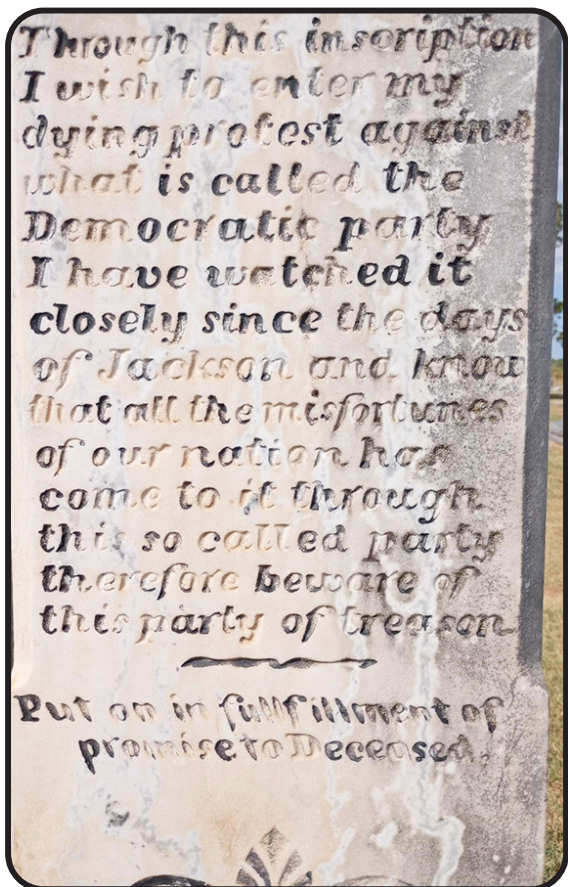 Through this inscription
I wish to enter my
dying protest against
what is called the
Democratic party
I have watched it
closely since the days
of Jackson and know
that all the misfortunes
of our nation has
come to it through
this so called party
therefore beware of
this party of treason.
Put on in fullfillment of
promise to Deceased.